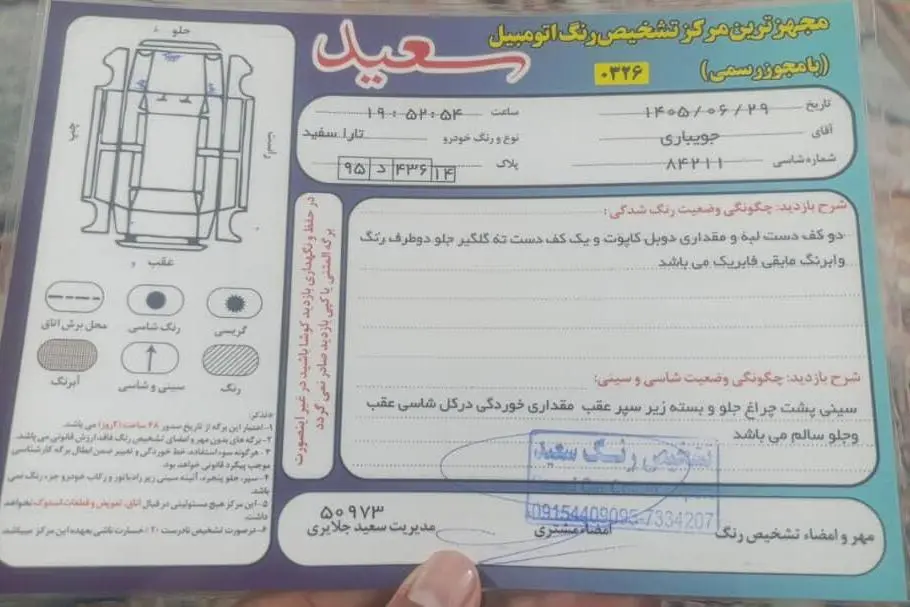 مجهزترین مرکز تشخیص رنگ اتومبیل
سعید
(با مجوز رسمی)
۰۳۲۶
تاریخ ۱۴۰۵/۰۶/۲۹
ساعت ۱۹:۵۲:۵۴
آقای جویباری
نوع و رنگ خودرو تارا سفید
شماره شاسی ۸۴۲۱۱
پلاک ۹۵ د ۴۳۶ ۱۴
شرح بازدید: چگونگی وضعیت رنگ شدگی:
دو کف دست لبه و مقداری دوبل کاپوت و یک کف دست ته گلگیر جلو دوطرف رنگ
وابرنگ مابقی فابریک می باشد
شرح بازدید: چگونگی وضعیت شاسی و سینی:
سینی پشت چراغ جلو و بسته زیر سپر عقب مقداری خوردگی درکل شاسی عقب
وجلو سالم می باشد
در حفظ و نگهداری بازدید کوشا باشید در غیر اینصورت
برگه المثنی یا کپی بازدید صادر نمی گردد
جلو
چپ
راست
عقب
گریسی
رنگ شاسی
محل برش اتاق
رنگ
سینی و شاسی
آبرنگ
تذکر:
۱- اعتبار این برگه از تاریخ صدور ۴۸ ساعت (۲ روز) می باشد.
۲- برگه های بدون مهر و امضای تشخیص رنگ فاقد ارزش قانونی می باشد.
۳- هرگونه سوء استفاده، خط خوردگی و تغییر ضمن ابطال برگه کارشناسی
موجب پیگرد قانونی خواهد بود.
۴- سپر، جلو پنجره، آئینه سینی زیر رادیاتور و رکاب خودرو جزء رنگ نمی
باشد.
۵- این مرکز هیچ مسئولیتی در قبال اتاق، تعویض و قطعات استوک نخواهد
داشت.
۶- درصورت تشخیص نادرست خسارت ناشی بعهده این مرکز میباشد.
تشخیص رنگ سعید
09154409095-7334207
مهر و امضاء تشخیص رنگ
امضاء مشتری
۵۰۹۷۳
مدیریت سعید جلایری